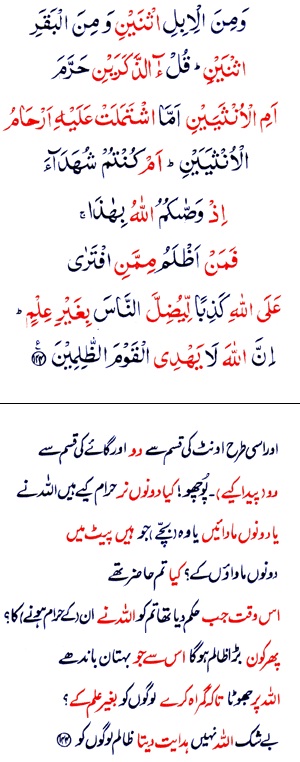 وَمِنَ الْاِبِلِ اثْنَيْنِ وَ مِنَ الْبَقَرِ
اثْنَيْنِ ؕ قُلْ ءٰٓالذَّكَرَيْنِ حَرَّمَ
اَمِ الْاُنْثَيَيْنِ اَمَّا اشْتَمَلَتْ عَلَيْهِ اَرْحَامُ
الْاُنْثَيَيْنِ ؕ اَمْ كُنْتُمْ شُهَدَآءَ
اِذْ وَصّٰكُمُ اللّٰهُ بِهٰذَا ۚ
فَمَنْ اَظْلَمُ مِمَّنِ افْتَرٰى
عَلَى اللّٰهِ كَذِبًا لِّيُضِلَّ النَّاسَ بِغَيْرِ عِلْمٍ ؕ
اِنَّ اللّٰهَ لَا يَهْدِى الْقَوْمَ الظّٰلِمِيْنَ ﴿۱۴۴﴾ ع
اور اسی طرح اونٹ کی قسم سے دو اور گائے کی قسم سے
دو (پیدا کیے)۔ پُوچھو! کیا دونوں نر حرام کیے ہیں اللہ نے
یا دونوں مادائیں یا وہ (بچّے) جو ہیں پیٹ میں
دونوں ماداؤں کے؟ کیا تم حاضر تھے
اس وقت جب حکم دیا تھا تم کو اللہ نے ان (کے حرام ہونے) کا؟
پھر کون بڑا ظالم ہوگا اس سے جو بہتان باندھے
اللہ پر جھوٹا تاکہ گمراہ کرے لوگوں کو بغیر علم کے؟
بے شک اللہ نہیں ہدایت دیتا ظالم لوگوں کو ﴿۱۴۴﴾